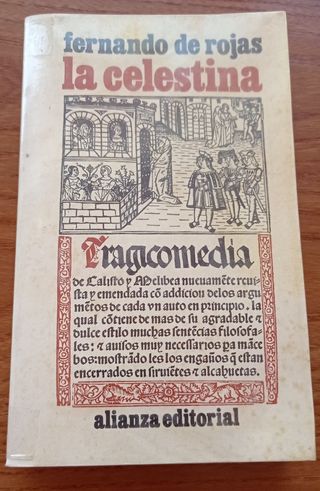 fernando de rojas
la celestina
Tragicomedia
de Calisto y Melibea nueuamẽte reuis
ta y emendada cõ addicion delos argu
mẽtos de cada vn auto en principio. la
qual cõtiene de mas de su agradable ⁊
dulce estilo muchas sentẽcias filosofa-
les: ⁊ auisos muy necessarios pa mãce
bos: mostrãdo les los engaños q̃ estan
encerrados en siruiẽtes ⁊ alcahuetas.
alianza editorial